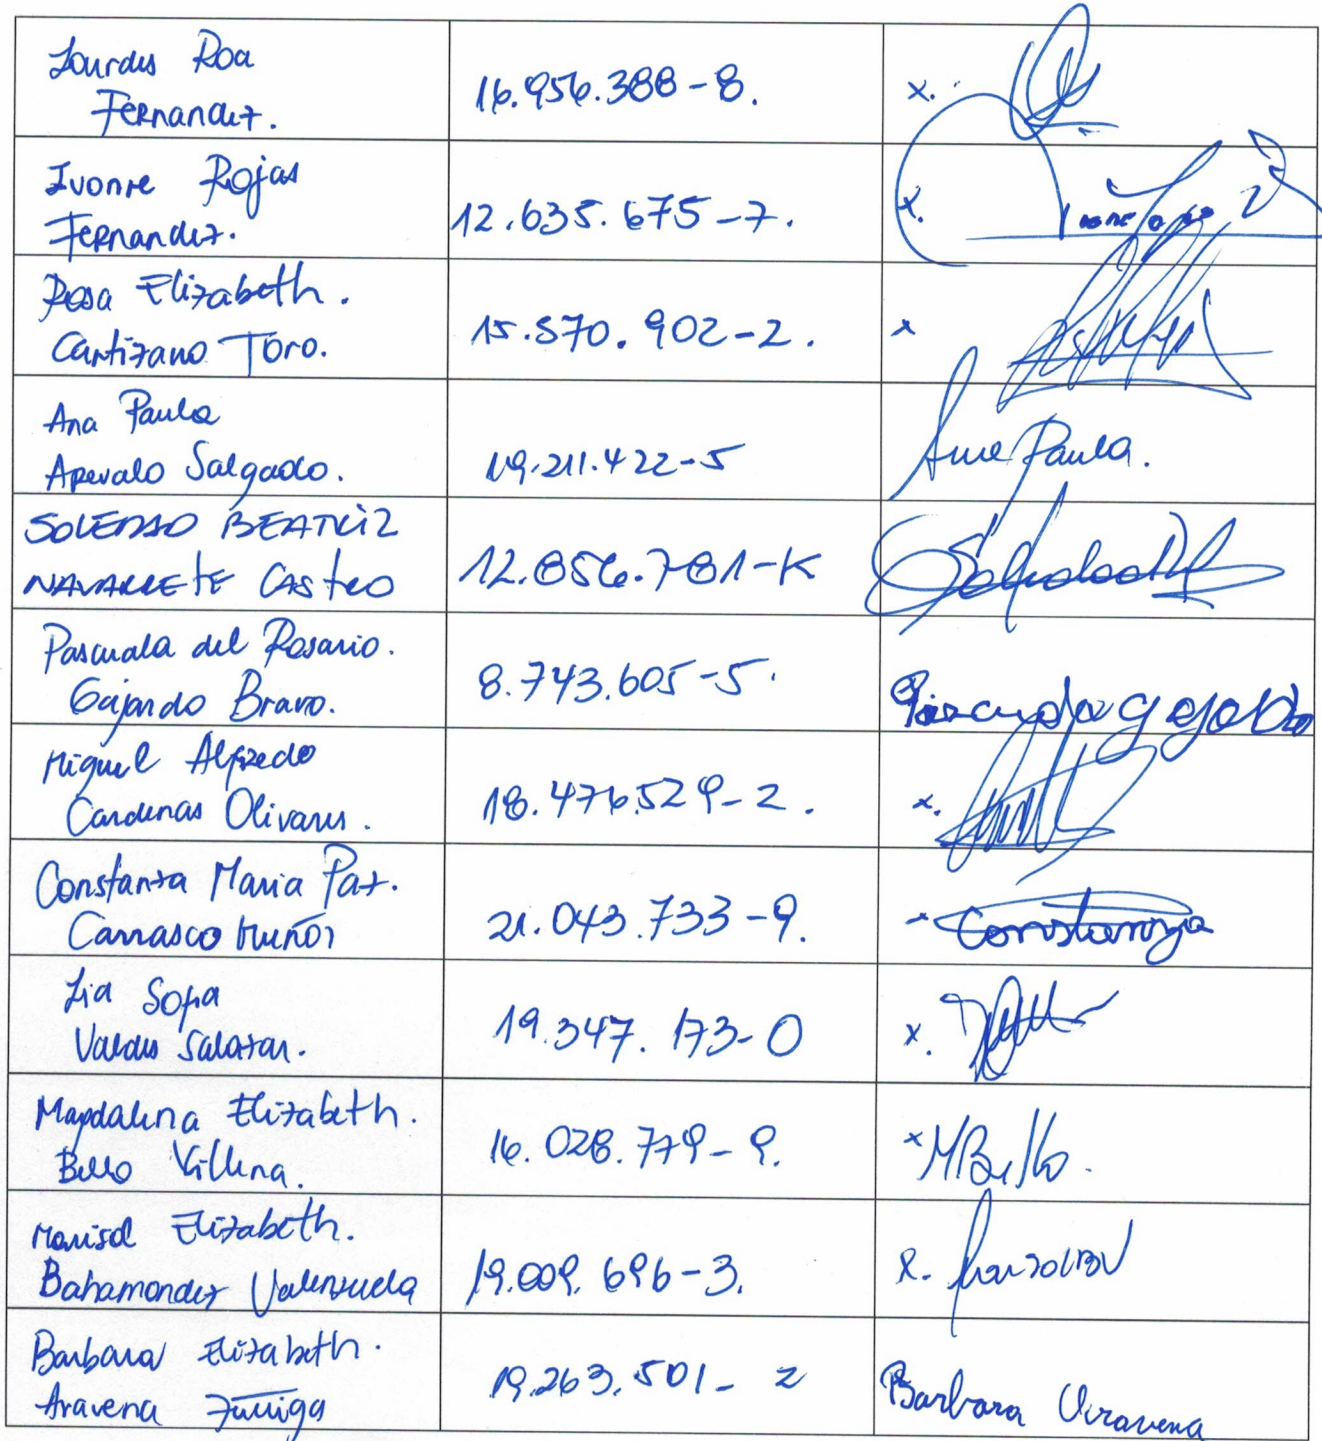 Lourdes Roa
Fernandez.
16.956.388-8.
x.
Ivonne Rojas
Fernandez.
12.635.675-7.
x.
Rosa Elizabeth.
Cartizano Toro.
15.570.902-2.
x
Ana Paula
Arevalo Salgado.
19.211.422-5
Ana Paula.
SOLEDAD BEATRIZ
NAVARRETE CASTRO
12.856.781-K
Pascuala del Rosario.
Gajardo Bravo.
8.743.605-5.
Miguel Alfredo
Cardenas Olivares.
18.476.529-2.
x.
Constanza Maria Paz.
Carrasco Muñoz
21.043.733-9.
x Constanza
Lia Sofia
Valdes Salazar.
19.347.173-0
x.
Magdalena Elizabeth.
Bello Villena.
16.028.779-9.
x MBello.
Marisol Elizabeth.
Bahamondez Valenzuela
19.009.696-3.
x. MarisolBV
Barbara Elizabeth.
Aravena Zuñiga
19.263.501-2
Barbara Aravena